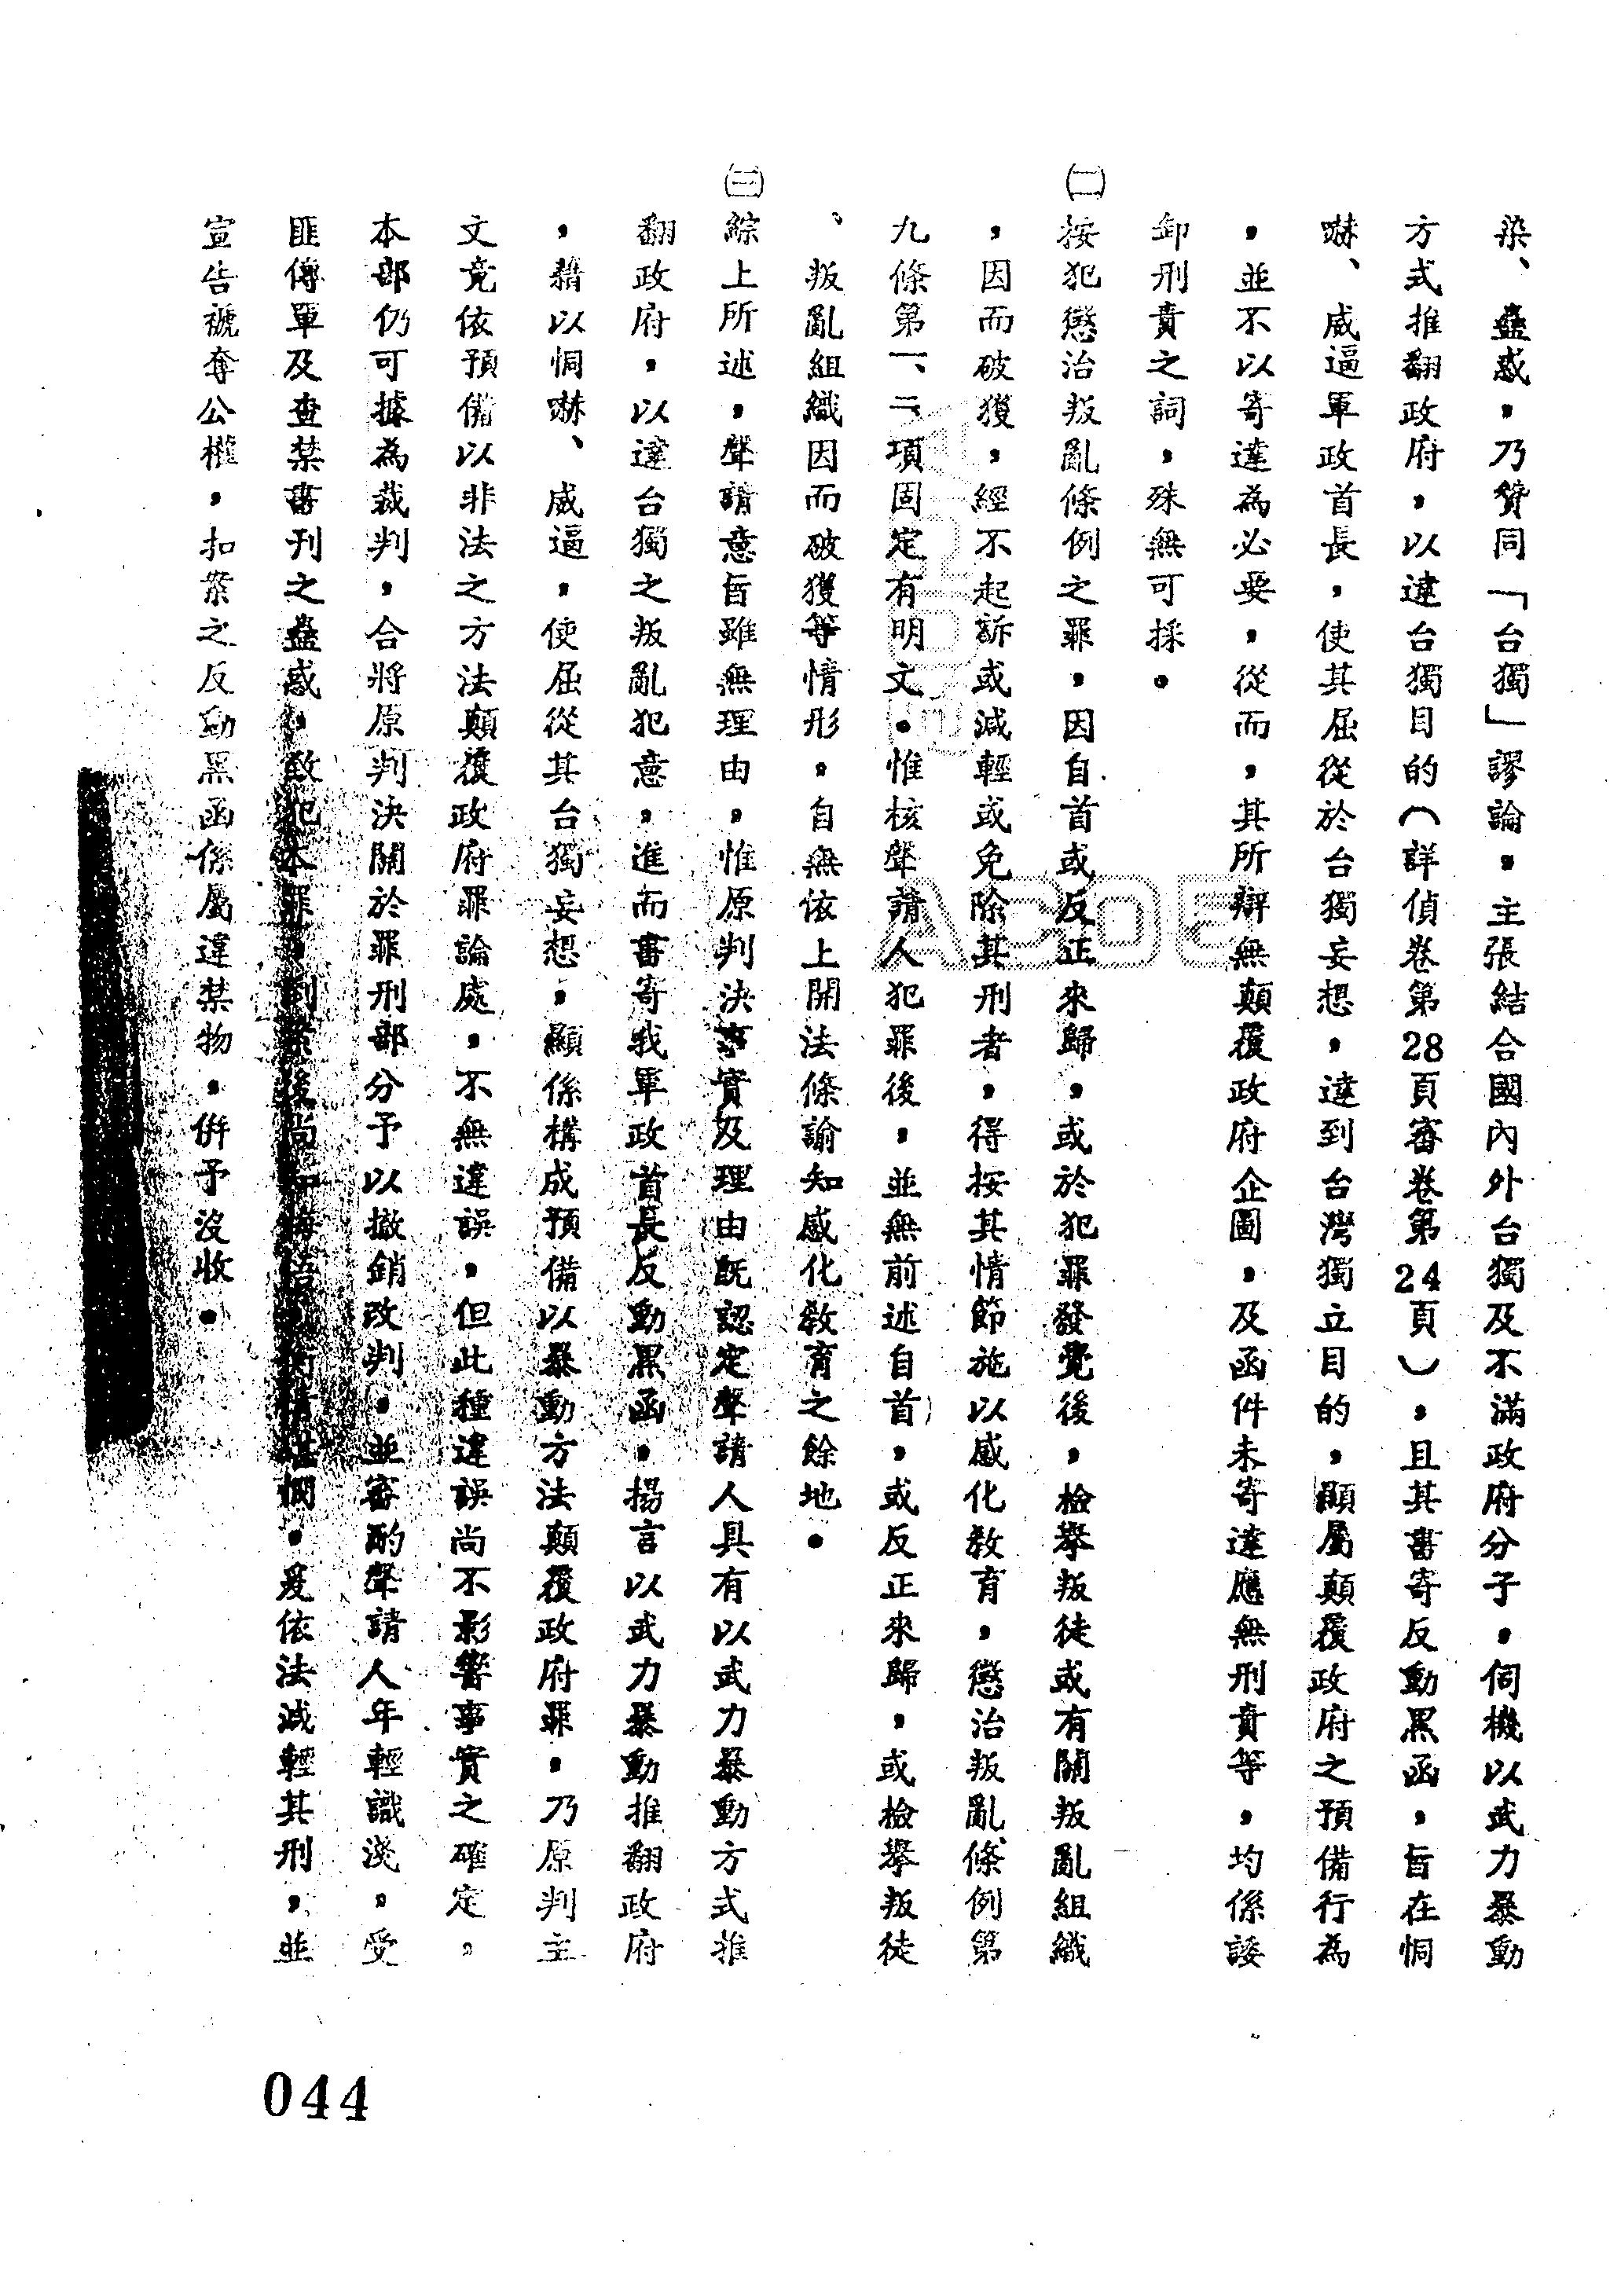 染、蠱惑，乃贊同「台獨」謬論，主張結合國內外台獨及不滿政府分子，伺機以武力暴動
方式推翻政府，以達台獨目的（詳偵卷第28頁審卷第24頁），且其書寄反動黑函，旨在恫
嚇、威逼軍政首長，使其屈從於台獨妄想，達到台灣獨立目的，顯屬顛覆政府之預備行為
，並不以寄達為必要，從而，其所辯無顛覆政府企圖，及函件未寄達應無刑責等，均係諉
卸刑責之詞，殊無可採。
㈡按犯懲治叛亂條例之罪，因自首或反正來歸，或於犯罪發覺後，檢舉叛徒或有關叛亂組織
，因而破獲，經不起訴或減輕或免除其刑者，得按其情節施以感化教育，懲治叛亂條例第
九條第一、二項固定有明文。惟核聲請人犯罪後，並無前述自首，或反正來歸，或檢舉叛徒
、叛亂組織因而破獲等情形，自無依上開法條諭知感化教育之餘地。
㈢綜上所述，聲請意旨雖無理由，惟原判決事實及理由既認定聲請人具有以武力暴動方式推
翻政府，以達台獨之叛亂犯意，進而書寄我軍政首長反動黑函，揚言以武力暴動推翻政府
，藉以恫嚇、威逼，使屈從其台獨妄想，顯係構成預備以暴動方法顛覆政府罪，乃原判主
文竟依預備以非法之方法顛覆政府罪論處，不無違誤，但此種違誤尚不影響事實之確定，
本部仍可據為裁判，合將原判決關於罪刑部分予以撤銷改判，並審酌聲請人年輕識淺，受
匪傳單及查禁書刊之蠱惑，致犯本罪，到案後尚知悔悟，衡情堪憫，爰依法減輕其刑，並
宣告褫奪公權，扣案之反動黑函係屬違禁物，併予沒收。
ACDE
044